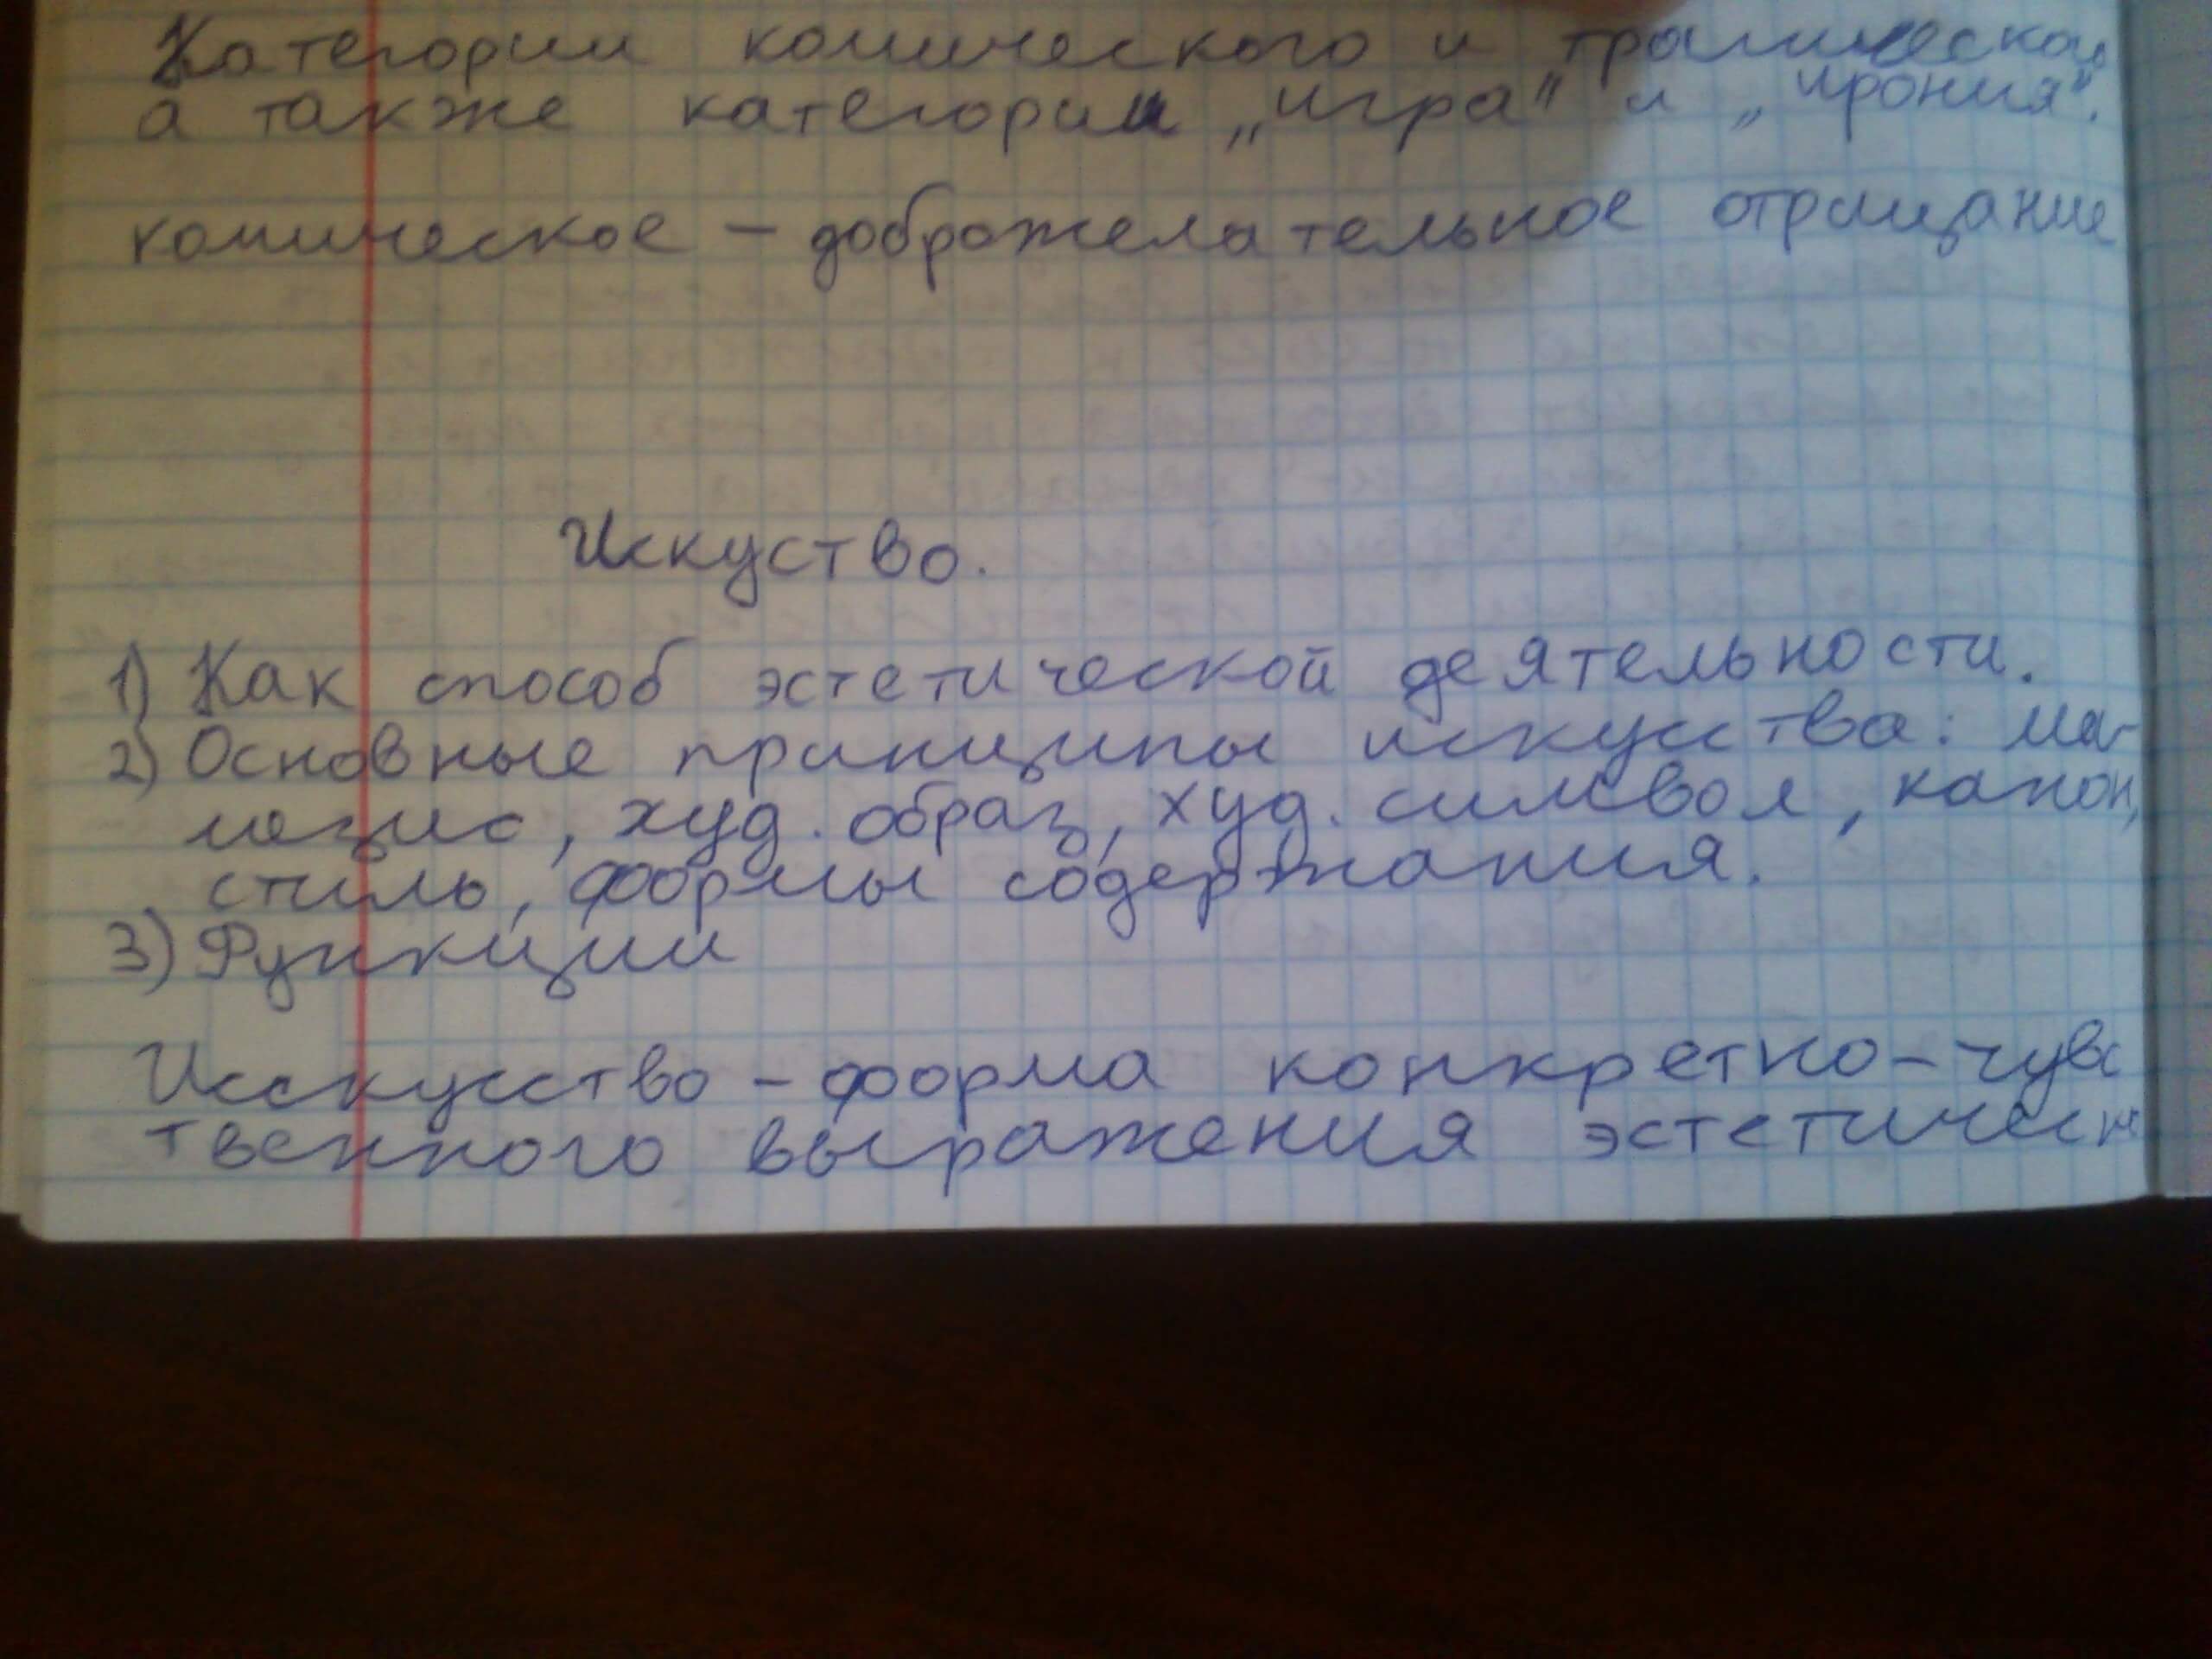 Категории комического и трагического
а также категории „игра" и „ирония".
комическое – доброжелательное отрицание
Искуство.
1) Как способ эстетической деятельности.
2) Основные принципы искусства: ми-
мезис, худ. образ, худ. символ, канон,
стиль, формы содержания.
3) Функции
Исскусство – форма конкретно-чувс
твенного выражения эстетическ